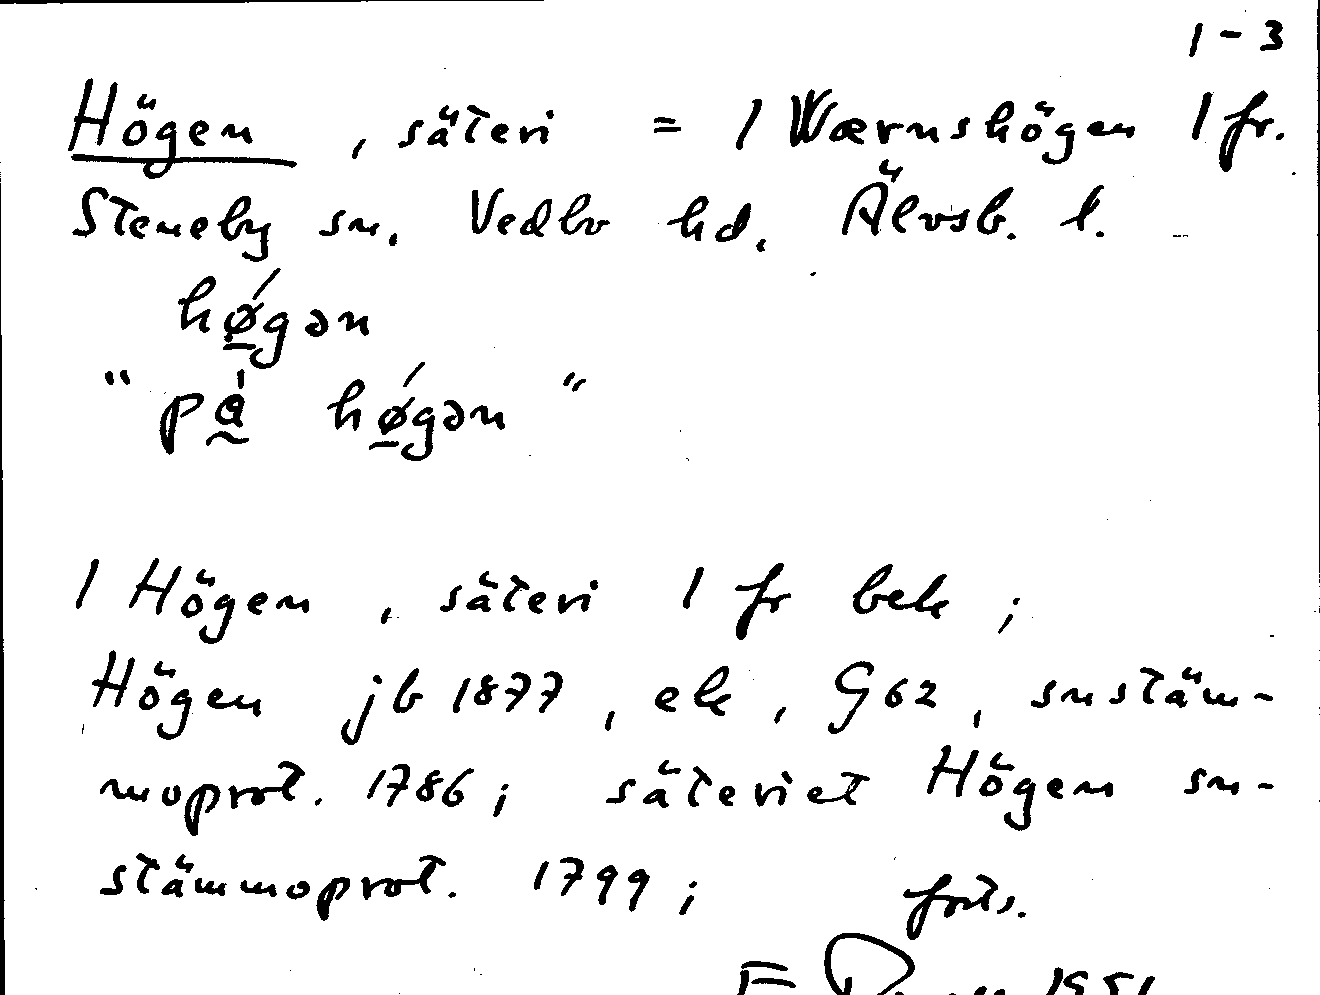 1-3
Högen, säteri = 1 Wærnshögen 1 fr.
Steneby sn. Vedbo hd. Älvsb. l.
hǿ̲gən
"på̰ hǿ̲gən"
1 Högen, säteri 1 fr bek;
Högen jb 1877, ek, G62, snstäm-
moprot. 1786; säteriet Högen sn-
stämmoprot. 1799; forts.
1951